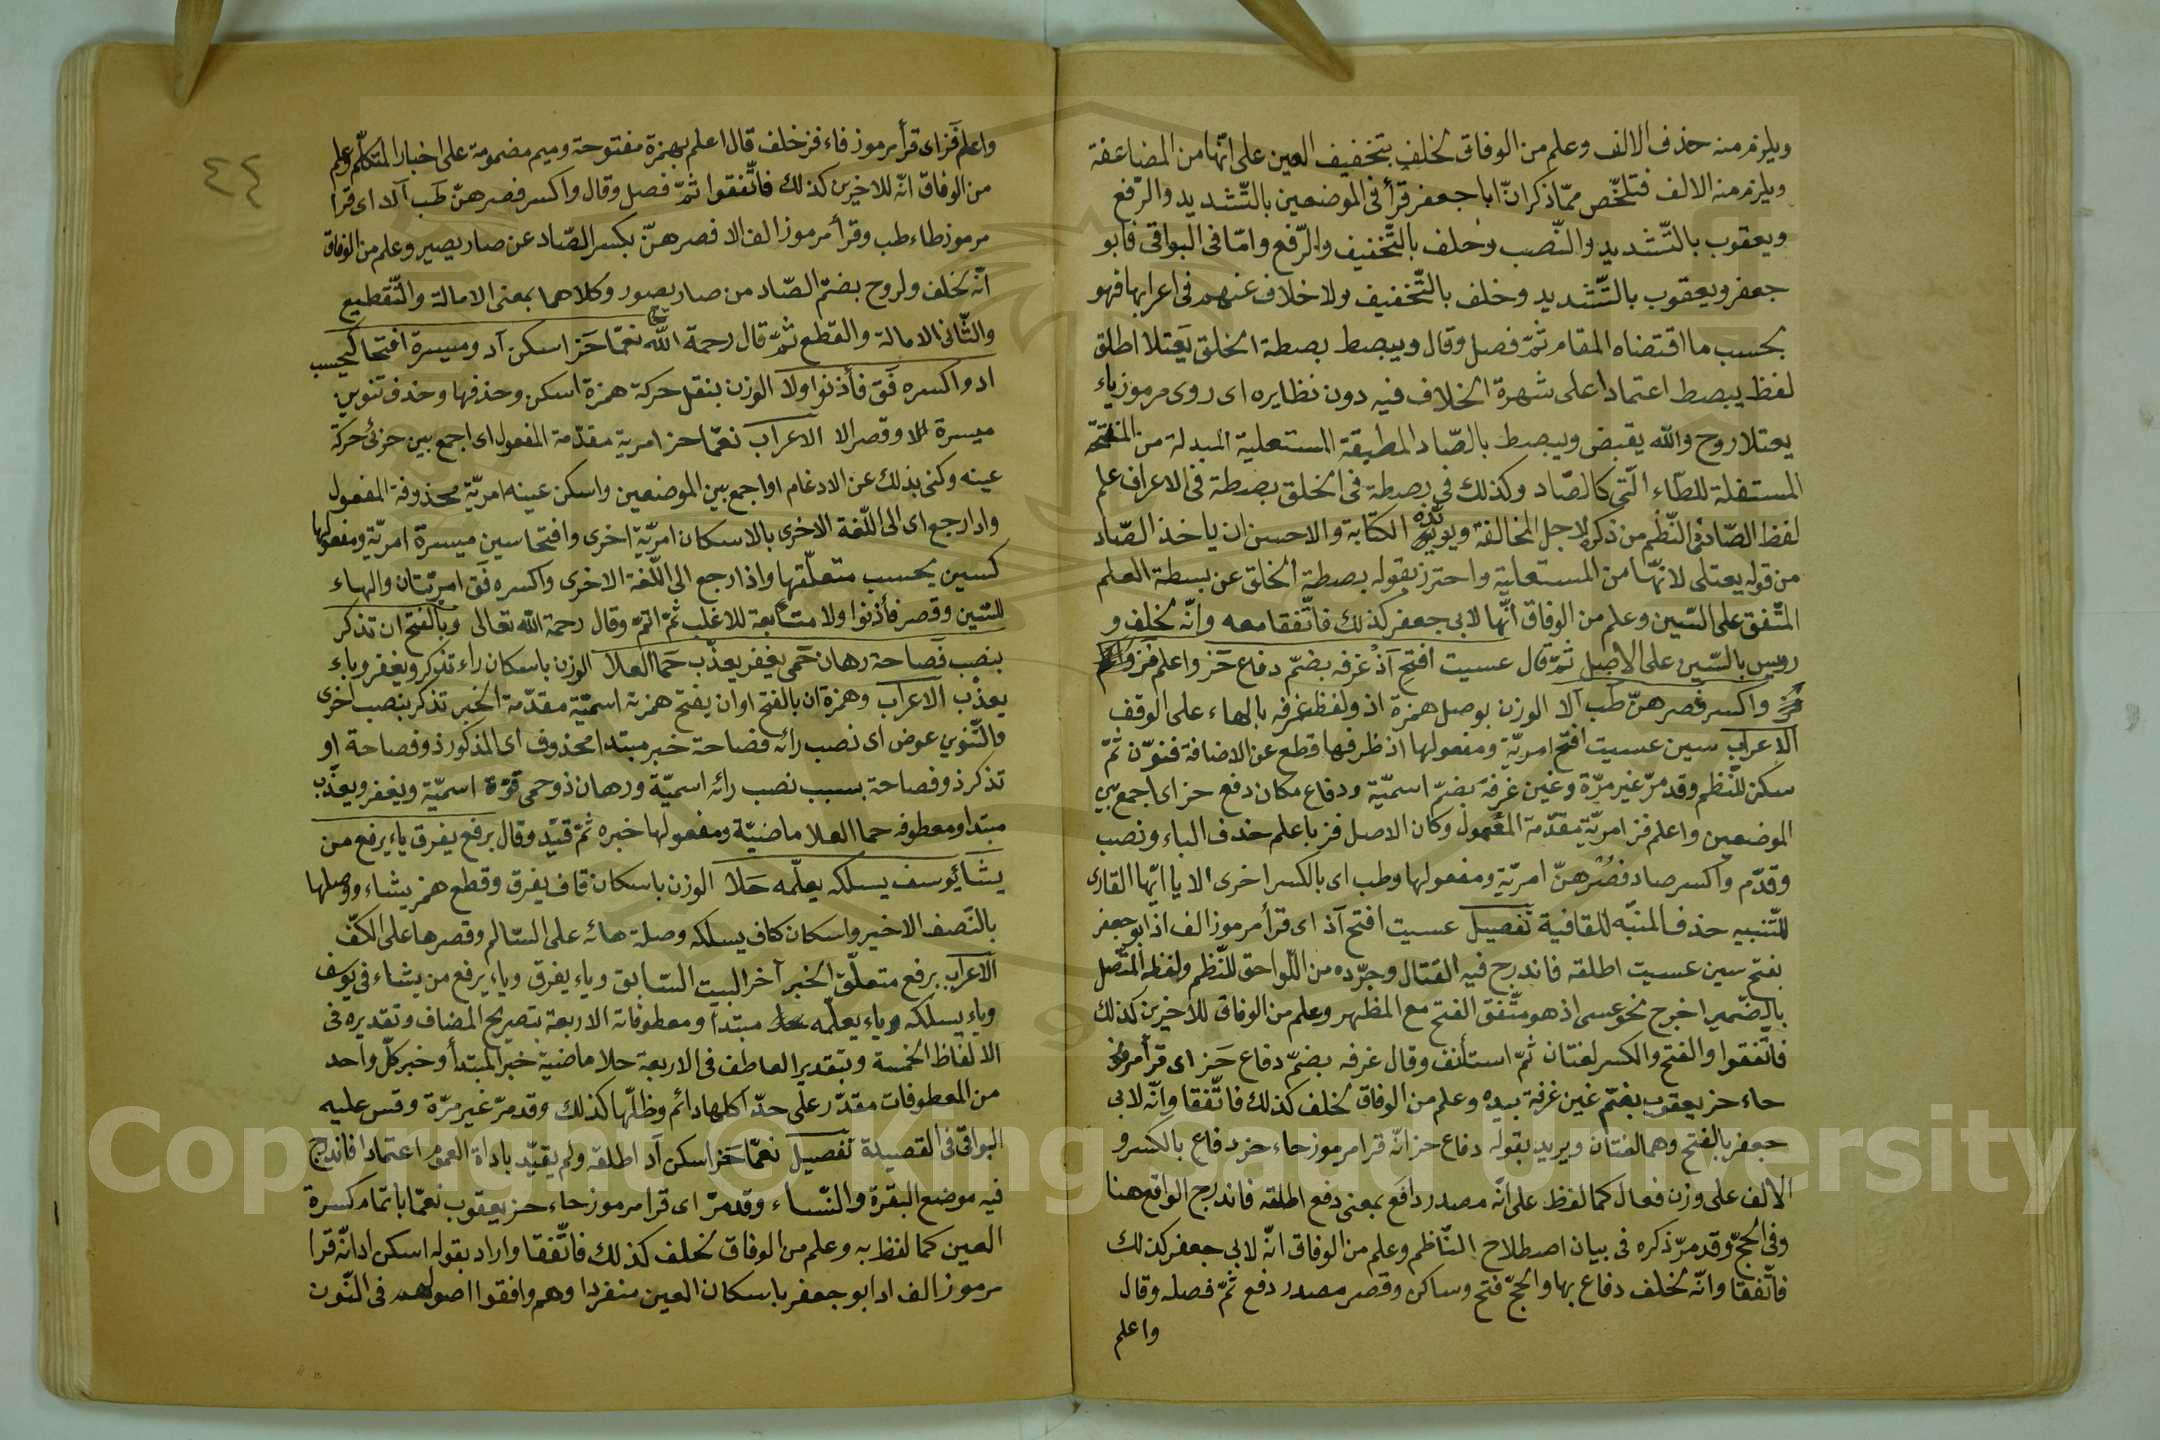 ويلزم منه حذف الالف وعلم من الوفاق لخلف بتخفيف العين على انّها من المضاعفة
ويلزم منه الالف فتلخّص ممّا ذكر انّ ابا جعفر قرأ فى الموضعين بالتّشديد والرّفع
ويعقوب بالتّشديد والنّصب وخلف بالتّخفيف والرّفع وامّا فى البواقى فابو
جعفر ويعقوب بالتّشديد وخلف بالتّخفيف ولا خلاف عنهم فى اعرابها فهو
بحسب ما اقتضاه المقام ثمّ فصل وقال ويبصط بصطة الخلق يَعتلا اطلق
لفظ يبصط اعتمادا على شهرة الخلاف فيه دون نظايره اى روى مرموز ياء
يعتلا روح والله يقبض ويبصط بالصّاد المطبقة المستعلية المبدلة من المنفتحة
المستفلة للطّاء الّتى كالصّاد وكذلك فى بصطة فى الخلق بصطة فى الاعراف علم
لفظ الصّاد فى النّظم من ذكره لاجل المخالفة ويؤيّده الكتابة والاحسن ان ياخذ الصّاد
من قوله يعتلى لانّها من المستعلية واحترز بقوله بصطة الخلق عن بسطة العلم
المتّفق على السّين وعلم من الوفاق انّها لابى جعفر كذلك فاتّفقا معه وانّه لخلف و
رويس بالسّين على الاصل ثمّ قال عسيت افتح آذ غرفه بضمّ دفاع حَز واعلم فز
واكسر فصرهنّ طب آلا الوزن بوصل همزة اذ ولفظ غرفه بالهاء على الوقف
الاعراب سين عسيت افتح امريّة ومفعولها اذ ظرفها قطع عن الاضافة فنوّن ثمّ
سكن للنّظم وقد مرّ غير مرّة وغين غرفة بضمّ اسميّة ودفاع مكان دفع حز اى اجمع بين
الموضعين واعلم فز امريّة مقدّمة المفعول وكان الاصل فز باعلم حذف الباء ونصب
وقدّم واكسر صاد فصرهنّ امريّة ومفعولها وطب اى بالكسر اخرى الا يا ايّها القارى
للتّنبيه حذف المنبّه للقافية تفصيل عسيت افتح آذ اى قرأ مرموز الف اذ ابو جعفر
بفتح سين عسيت اطلقه فاندرج فيه القتال وجرّده من اللّواحق للنّظم ولفظه المتّصل
بالضّمير اخرج نحو عسى اذ هو متّفق الفتح مع المظهر وعلم من الوفاق للاخيرين كذلك
فاتّفقوا والفتح والكسر لغتان ثمّ استأنف وقال غرفه بضمّ دفاع حَز اى قرأ مرموز
حاء حز يعقوب بضمّ غين غرفة بيده وعلم من الوفاق لخلف كذلك فاتّفقا وانّه لابى
جعفر بالفتح وهما لغتان ويريد بقوله دفاع حز انّه قرا مرموز حاء حز دفاع بالكسر و
الالف على وزن فعال كما لفظ على انّه مصدر دافع بمعنى دفع اطلقه فاندرج الواقع هنا
وفى الحجّ وقد مرّ ذكره فى بيان اصطلاح النّاظم وعلم من الوفاق انّه لابى جعفر كذلك
فاتّفقا وانّه لخلف دفاع بها والحجّ فتح وساكن وقصر مصدر دفع ثمّ فصله وقال
واعلم
٤٤
واعلم فَز اى قرأ مرموز فاء فز خلف قال اعلم بهمزة مفتوحة وميم مضمومة على اخبار المتكلّم وعلم
من الوفاق انّه للاخيرين كذلك فاتّفقوا ثمّ فصل وقال واكسر فصرهنّ طَب آلا اى قرا
مرموز طاء طب وقرأ مرموز الف الا فصرهنّ بكسر الصّاد عن صار يصير وعلم من الوفاق
انّه لخلف ولروح بضمّ الصّاد من صار يصور وكلاهما بمعنى الامالة والتّقطيع
والثّانى الامالة والقطع ثمّ قال رحمة الله نعمّا حَز اسكن آد وميسرة افتحا كيحسب
اد واكسره فَق فأذنوا ولا الوزن بنقل حركة همزة اسكن وحذفها وحذف تنوين
ميسرة وقصر الا الاعراب نعمّا حز امرية مقدّمة المفعول اى اجمع بين جزئى حركة
عينه وكنى بذلك عن الادغام او اجمع بين الموضعين واسكن عينه امريّة محذوفة المفعول
واد ارجع اى الى اللّغة الاخرى بالاسكان امريّة اخرى وافتحا سين ميسرة امريّة ومفعولها
كسين يحسب متعلّقها واذ ارجع الى اللّغة الاخرى واكسره فَق امريّتان والهاء
للسّين وقصر فأذنوا ولا متابعة للاغلب ثمّ اتمّ وقال رحمة الله تعالى وبالفتح ان تذكر
بنصب فصاحة رهان حَمى يغفر يعذّب حَما العلا الوزن باسكان راء تذكر ويغفر وباء
يعذّب الاعراب وهمزة ان بالفتح او ان يفتح همزته اسميّة مقدّمة الخبر تذكر بنصب اخرى
فالتّنوين عوض اى نصب رائه فصاحة خبر مبتدا محذوف اى المذكور ذو فصاحة او
تذكر ذو فصاحة بسبب نصب رائه اسميّة ورهان ذو حمى قوّة اسميّة ويغفر ويعذّب
مبتدا ومعطوفه حما العلا ماضيّة ومفعولها خبره ثمّ قيّد وقال برفع يفرق ياء يرفع من
يشا يوسف يسلكه يعلّمه حَلا الوزن باسكان قاف يفرق وقطع همز يشاء ووصلها
بالنّصف الاخير واسكان كاف يسلكه وصلة هائه على السّالم وقصرها على الكفّ
الاعراب برفع متعلّق الخبر آخر البيت السّابق وياء يفرق وياء يرفع من يشاء فى يوسف
وياء يسلكه وياء يعلّمه مبتدأ ومعطوفاته الاربعة بتصريح المضاف وتقديره فى
الالفاظ الخمسة وبتقدير العاطف فى الاربعة حلا ماضية خبر المبتدأ وخبر كلّ واحد
من المعطوفات مقدّر على حدّ اكلها دائم وظلّها كذلك وقد مرّ غير مرّة وقس عليه
البواقى فى القصيدة تفصيل نعمّا حَز اسكن آد اطلقه ولم يقيّد باداة العموم اعتمادا فاندرج
فيه موضع البقرة والنّساء وقد مرّ اى قرا مرموز حاء حز يعقوب نعمّا باتمام كسرة
العين كما لفظ به وعلم من الوفاق لخلف كذلك فاتّفقا واراد بقوله اسكن اد انّه قرا
مرموز الف اد ابو جعفر باسكان العين منفردا وهم وافقوا اصولهم فى النّون
Copyright © King Saud University